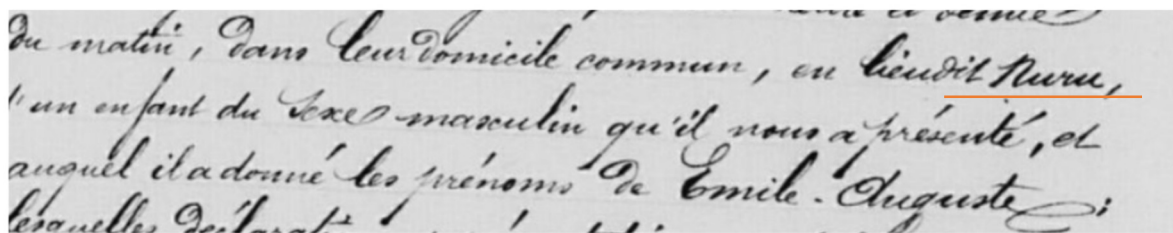 du matin, dans leur domicile commun, en lieudit Nuru,
d'un enfant du sexe masculin qu'il nous a présenté, et
auquel il a donné les prénoms de Emile-Auguste;
lesquelles